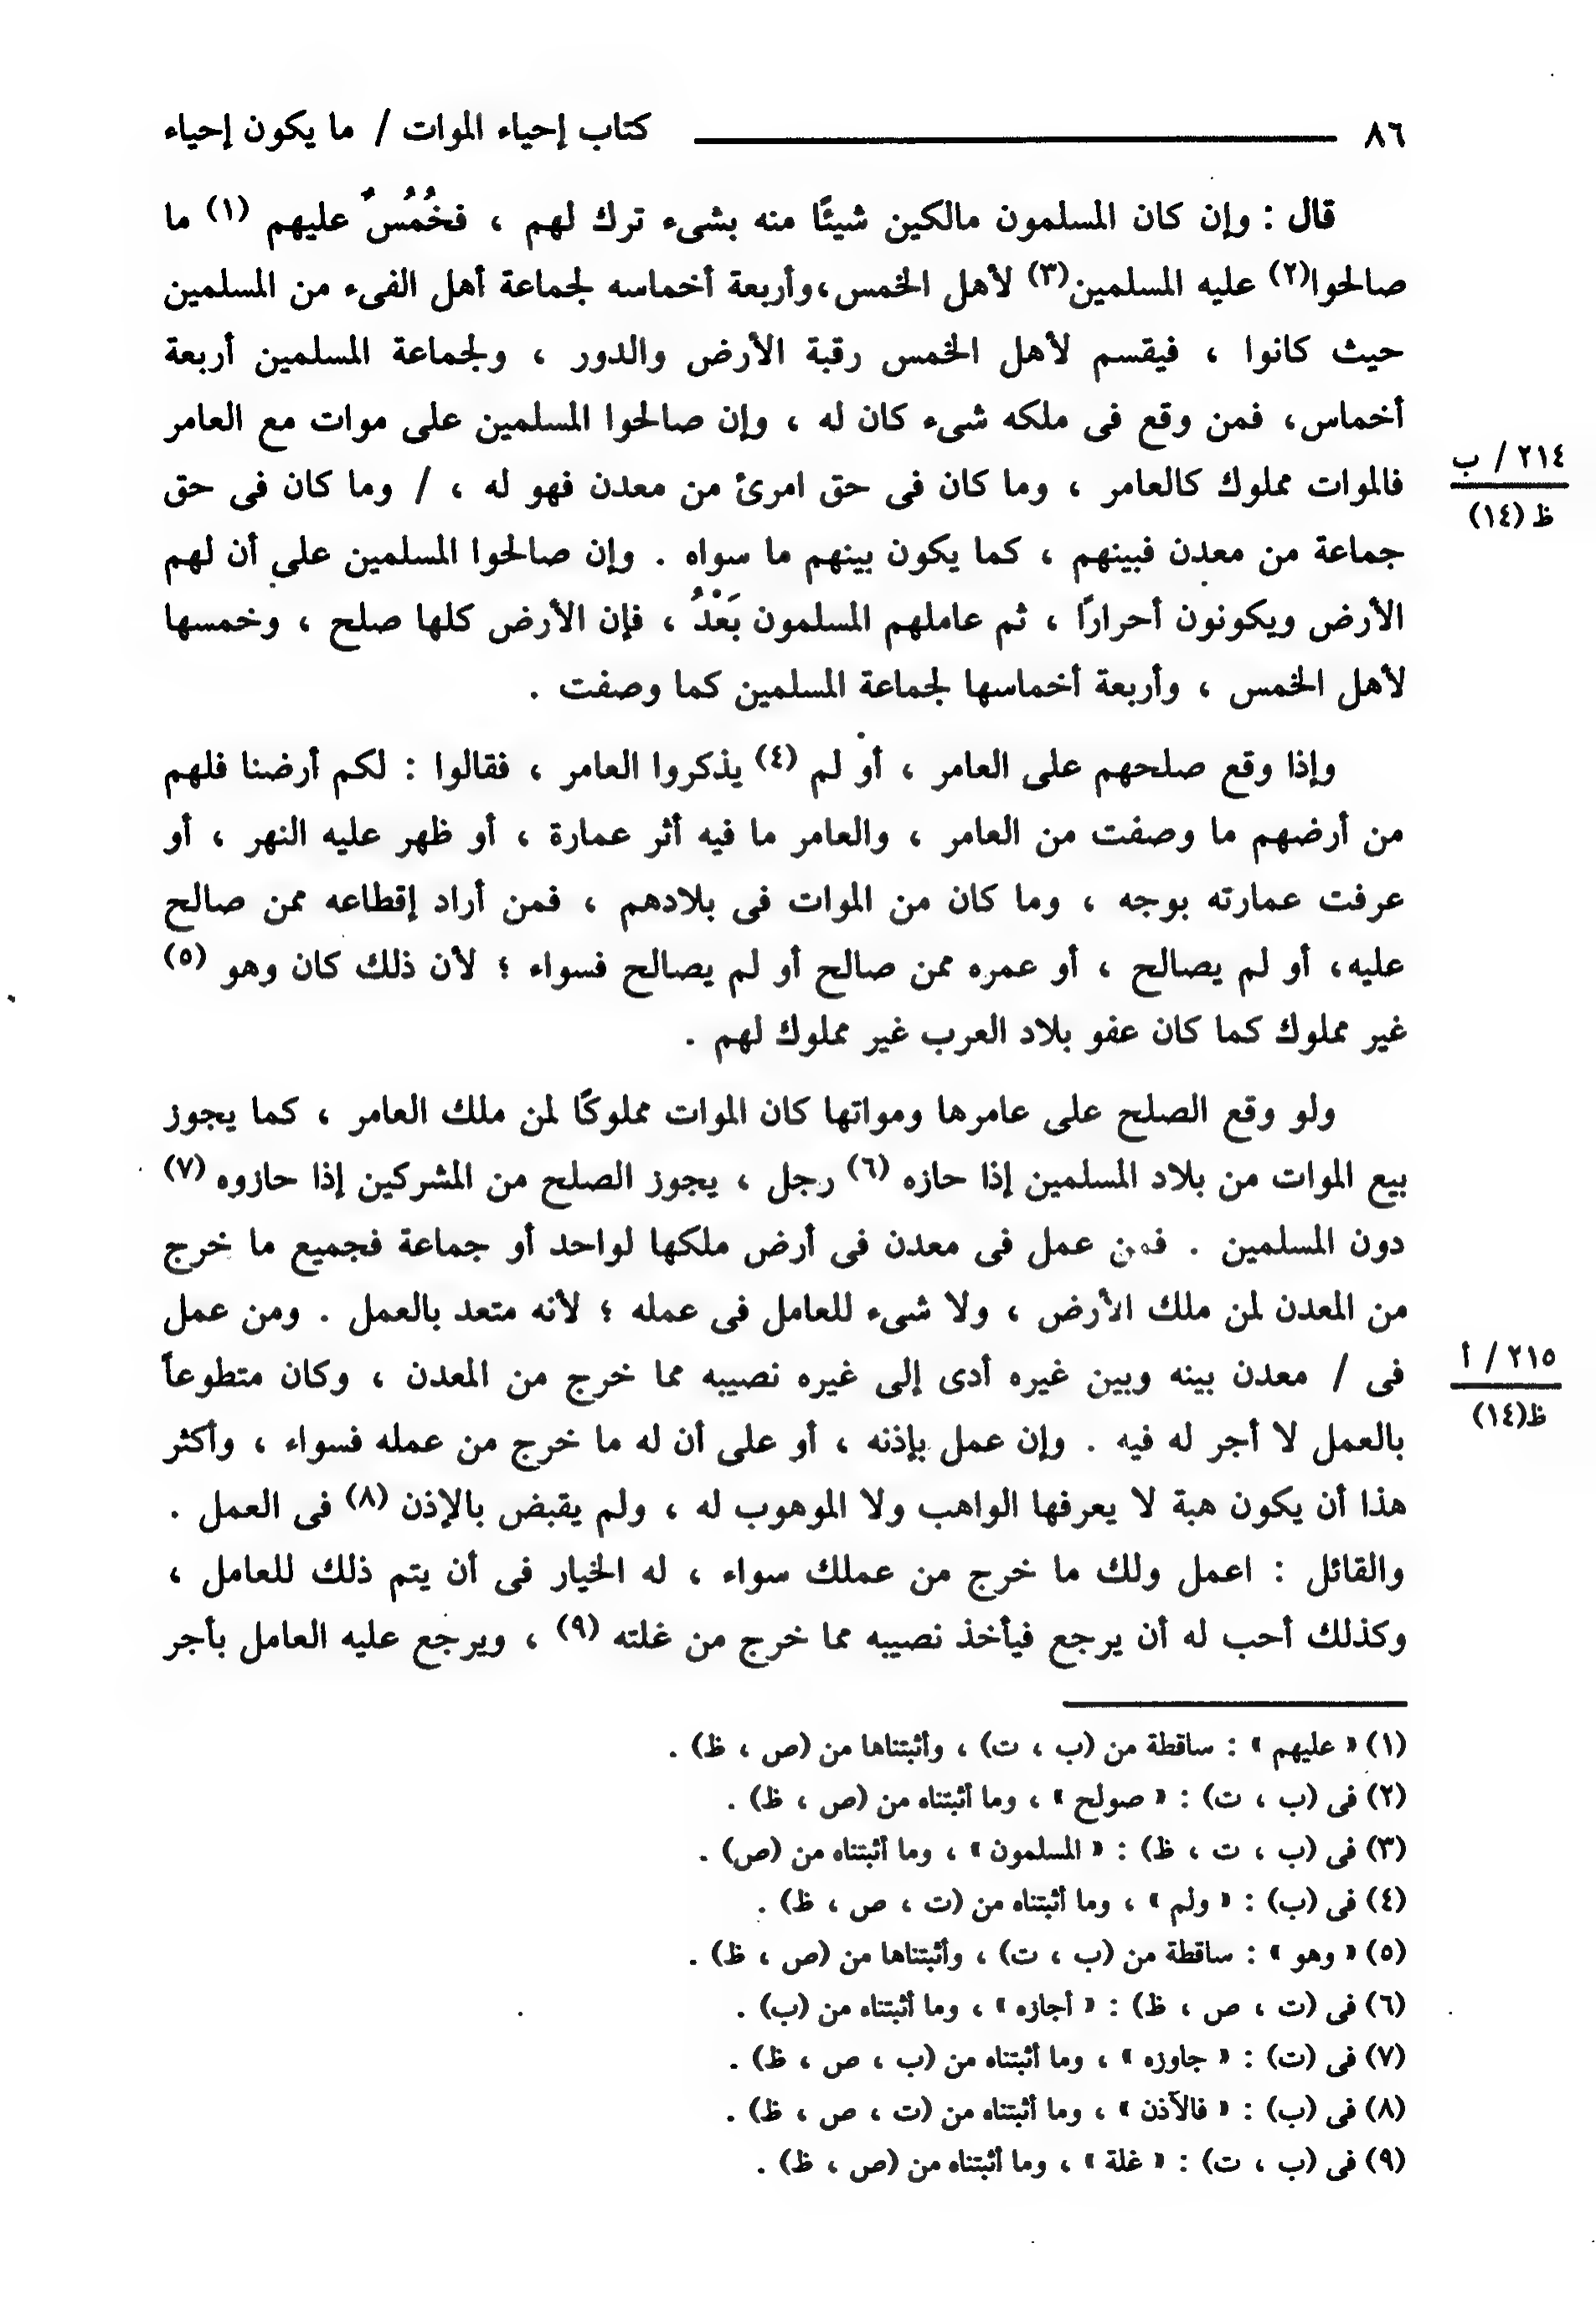 ٨٦ كتاب إحياء الموات / ما يكون إحياء
قال : وإن كان المسلمون مالكين شيئًا منه بشىء ترك لهم ، فخُمُسٌ عليهم (١) ما
صالحوا(٢) عليه المسلمين(٣) لأهل الخمس،وأربعة أخماسه لجماعة أهل الفىء من المسلمين
حيث كانوا ، فيقسم لأهل الخمس رقبة الأرض والدور ، ولجماعة المسلمين أربعة
أخماس، فمن وقع فى ملكه شىء كان له ، وإن صالحوا المسلمين على موات مع العامر
فالموات مملوك كالعامر ، وما كان فى حق امرئ من معدن فهو له ، / وما كان فى حق
٢١٤ / ب
ظ (١٤)
جماعة من معدن فبينهم ، كما يكون بينهم ما سواه . وإن صالحوا المسلمين على أن لهم
الأرض ويكونون أحرارًا ، ثم عاملهم المسلمون بَعْدُ ، فإن الأرض كلها صلح ، وخمسها
لأهل الخمس ، وأربعة أخماسها لجماعة المسلمين كما وصفت .
وإذا وقع صلحهم على العامر ، أو لم (٤) يذكروا العامر ، فقالوا : لكم أرضنا فلهم
من أرضهم ما وصفت من العامر ، والعامر ما فيه أثر عمارة ، أو ظهر عليه النهر ، أو
عرفت عمارته بوجه ، وما كان من الموات فى بلادهم ، فمن أراد إقطاعه ممن صالح
عليه، أو لم يصالح ، أو عمره ممن صالح أو لم يصالح فسواء ؛ لأن ذلك كان وهو (٥)
غير مملوك كما كان عفو بلاد العرب غير مملوك لهم .
ولو وقع الصلح على عامرها ومواتها كان الموات مملوكًا لمن ملك العامر ، كما يجوز
بيع الموات من بلاد المسلمين إذا حازه (٦) رجل ، يجوز الصلح من المشركين إذا حازوه (٧)
دون المسلمين . فمن عمل فى معدن فى أرض ملكها لواحد أو جماعة فجميع ما خرج
من المعدن لمن ملك الأرض ، ولا شىء للعامل فى عمله ؛ لأنه متعد بالعمل . ومن عمل
فى / معدن بينه وبين غيره أدى إلى غيره نصيبه مما خرج من المعدن ، وكان متطوعاً
٢١٥ / أ
ظ(١٤)
بالعمل لا أجر له فيه . وإن عمل بإذنه ، أو على أن له ما خرج من عمله فسواء ، وأكثر
هذا أن يكون هبة لا يعرفها الواهب ولا الموهوب له ، ولم يقبض بالإذن (٨) فى العمل .
والقائل : اعمل ولك ما خرج من عملك سواء ، له الخيار فى أن يتم ذلك للعامل ،
وكذلك أحب له أن يرجع فيأخذ نصيبه مما خرج من غلته (٩) ، ويرجع عليه العامل بأجر
(١) « عليهم » : ساقطة من (ب ، ت) ، وأثبتناها من (ص ، ظ) .
(٢) فى (ب ، ت) : « صولح » ، وما أثبتناه من (ص ، ظ) .
(٣) فى (ب ، ت ، ظ) : « المسلمون » ، وما أثبتناه من (ص) .
(٤) فى (ب) : « ولم » ، وما أثبتناه من (ت ، ص ، ظ) .
(٥) « وهو » : ساقطة من (ب ، ت) ، وأثبتناها من (ص ، ظ) .
(٦) فى (ت ، ص ، ظ) : « أجازه » ، وما أثبتناه من (ب) .
(٧) فى (ت) : « جاوزه » ، وما أثبتناه من (ب ، ص ، ظ) .
(٨) فى (ب) : « فالآذن » ، وما أثبتناه من (ت ، ص ، ظ) .
(٩) فى (ب ، ت) : « غلة » ، وما أثبتناه من (ص ، ظ) .